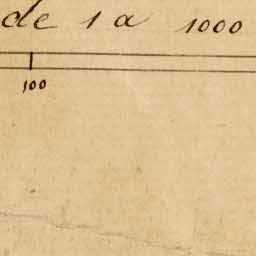 de 1 a 1000
100